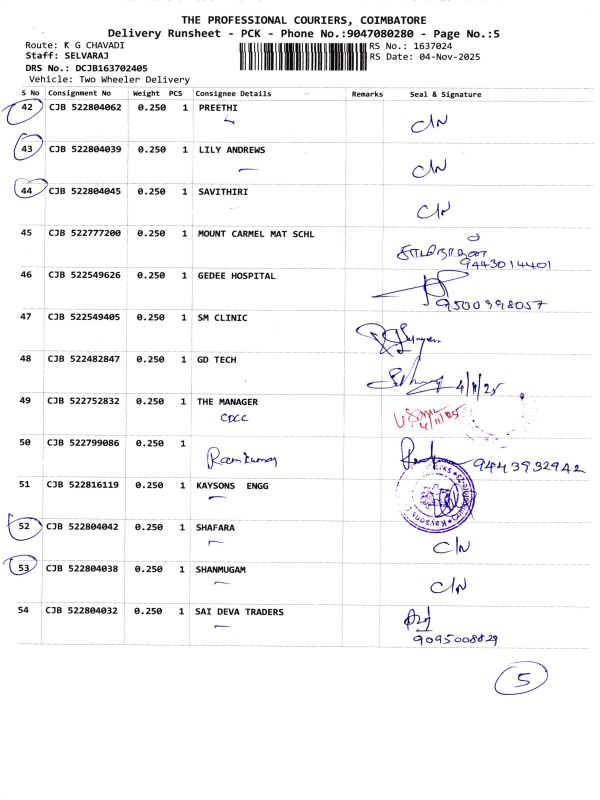 THE PROFESSIONAL COURIERS, COIMBATORE
Delivery Runsheet - PCK - Phone No.:9047080280 - Page No.:5
Route: K G CHAVADI RS No.: 1637024
Staff: SELVARAJ RS Date: 04-Nov-2025
DRS No.: DCJB163702405
Vehicle: Two Wheeler Delivery
S No Consignment No Weight PCS Consignee Details Remarks Seal & Signature
42 CJB 522804062 0.250 1 PREETHI C/N
43 CJB 522804039 0.250 1 LILY ANDREWS C/N
44 CJB 522804045 0.250 1 SAVITHIRI C/N
45 CJB 522777200 0.250 1 MOUNT CARMEL MAT SCHL
9443014401
46 CJB 522549626 0.250 1 GEDEE HOSPITAL
9500998057
47 CJB 522549405 0.250 1 SM CLINIC
48 CJB 522482847 0.250 1 GD TECH 4/11/25
49 CJB 522752832 0.250 1 THE MANAGER
CDCC 4/11/25
50 CJB 522799086 0.250 1
Ramkumar 9443932942
51 CJB 522816119 0.250 1 KAYSONS ENGG
52 CJB 522804042 0.250 1 SHAFARA C/N
53 CJB 522804038 0.250 1 SHANMUGAM C/N
54 CJB 522804032 0.250 1 SAI DEVA TRADERS
9095008829
5